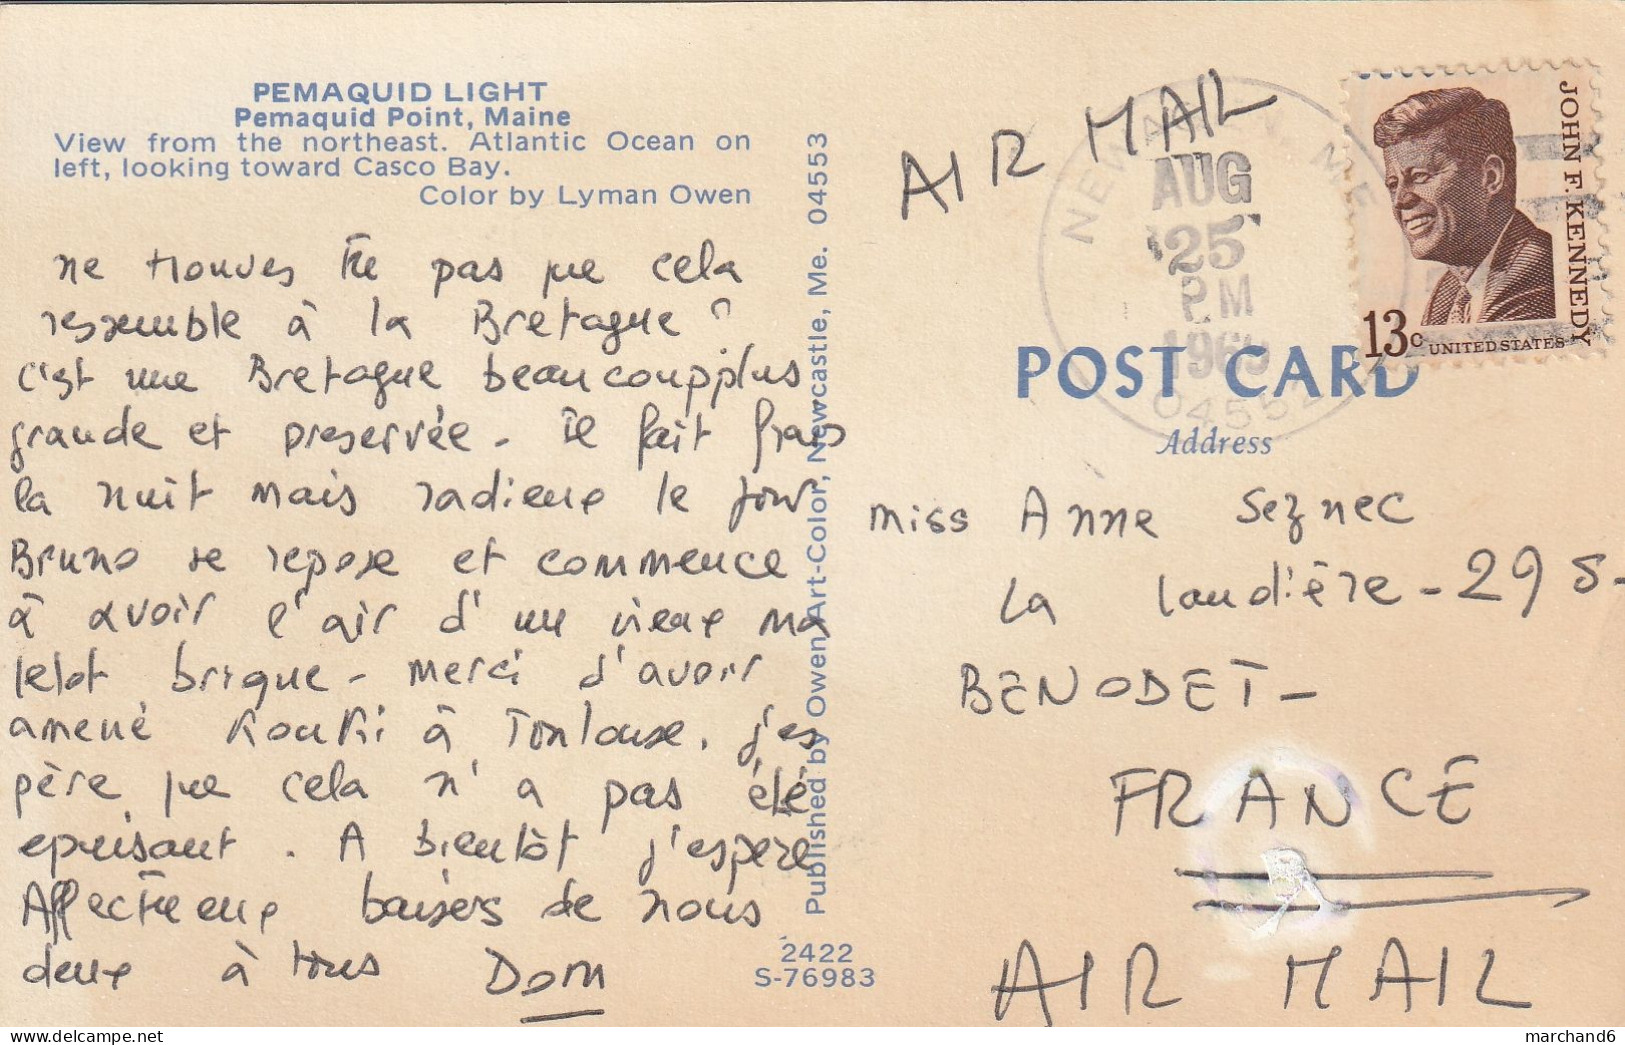 PEMAQUID LIGHT
Pemaquid Point, Maine
View from the northeast. Atlantic Ocean on
left, looking toward Casco Bay.
Color by Lyman Owen
ne trouves tu pas que cela
ressemble à la Bretagne ?
c'est une Bretagne beaucoup plus
grande et preservée - il fait frais
la nuit mais radieux le jour
Bruno se repose et commence
à avoir l'air d'un vieux ma
telot brique - merci d'avoir
amené Kouki à Toulouse. j'es
père que cela n'a pas été
epuisant. A bientôt j'espère
Affectueux baisers de nous
deux à tous Dom
Published by Owen Art-Color, Newcastle, Me. 04553
2422
S-76983
AIR MAIL
AUG
25
PM
JOHN F. KENNEDY
13c UNITED STATES
POST CARD
Address
miss Anne Seznec
La Laudière - 29 S-
BENODET -
FRANCE
AIR MAIL
marchand6